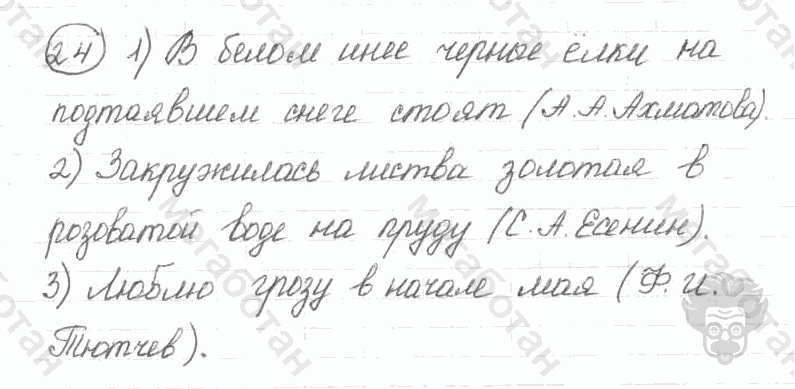 24 1) В белом инее черные ёлки на
подтаявшем снеге стоят (А.А.Ахматова).
2) Закружилась листва золотая в
розоватой воде на пруду (С.А.Есенин).
3) Люблю грозу в начале мая (Ф.И.
Тютчев).
мегаботан
мегаботан
мегаботан